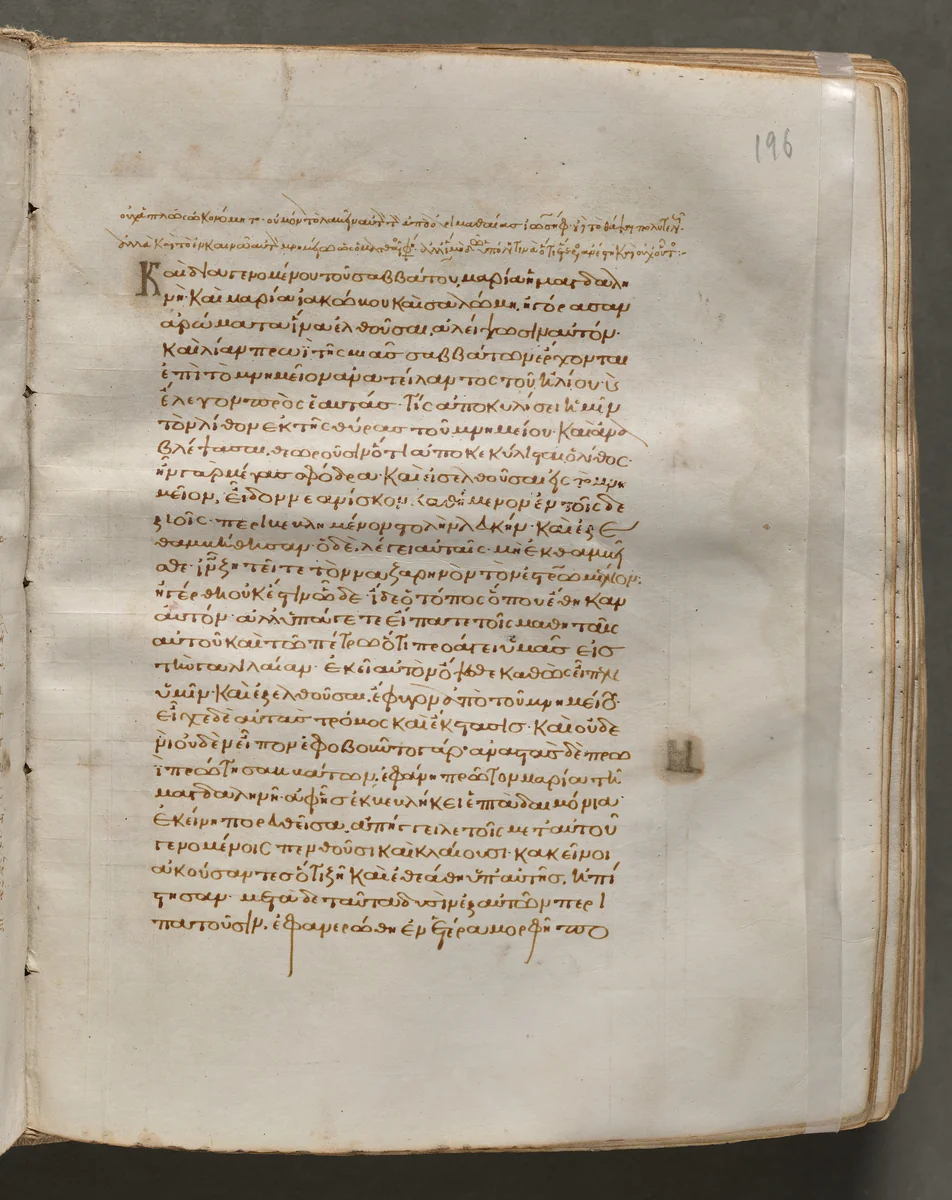 196
Καὶ διαγενομένου τοῦ σαββάτου, μαρία ἡ μαγδαλη
νὴ· καὶ μαρία ἰακώβου καὶ σαλώμη, ἠγόρασαν
ἀρώματα ἵνα ἐλθοῦσαι, ἀλείψωσιν αὐτόν·
καὶ λίαν πρωῒ τῆς μιᾶς σαββάτων ἔρχονται
ἐπὶ τὸ μνημεῖον ἀνατείλαντος τοῦ ἡλίου· κὶ
ἔλεγον πρὸς ἑαυτάς· τίς ἀποκυλίσει ἡμῖν
τὸν λίθον ἐκ τῆς θύρας τοῦ μνημείου· καὶ ἀνα
βλέψασαι, θεωροῦσιν ὅτι ἀποκεκύλισται ὁ λίθος·
ἦν γὰρ μέγας σφόδρα· καὶ εἰσελθοῦσαι εἰς τὸ μνη
μεῖον, εἶδον νεανίσκον καθήμενον ἐν τοῖς δε
ξιοῖς· περιβεβλημένον στολὴν λευκήν· καὶ ἐξε
θαμβήθησαν· ὁ δὲ, λέγει αὐταῖς· μὴ ἐκθαμβεῖ
σθε· ἰν ζητεῖτε τὸν ναζαρηνὸν τὸν ἐσταυρωμένον·
ἠγέρθη οὐκ ἔστιν ὧδε· ἴδε ὁ τόπος ὅπου ἔθηκαν
αὐτόν· ἀλλ' ὑπάγετε εἴπατε τοῖς μαθηταῖς
αὐτοῦ καὶ τῶ πέτρω ὅτι προάγει ὑμᾶς εἰς
τὴν γαλιλαίαν· ἐκεῖ αὐτὸν ὄψεσθε καθὼς εἶπεν
ὑμῖν· καὶ ἐξελθοῦσαι, ἔφυγον ἀπὸ τοῦ μνημείου·
εἶχε δὲ αὐτὰς τρόμος καὶ ἔκστασις· καὶ οὐδε
νὶ οὐδὲν εἶπον ἐφοβοῦντο γάρ· ἀναστὰς δὲ πρω
ῒ πρώτη σαββάτων, ἐφάνη πρῶτον μαρία τῆ
μαγδαληνῆ· ἀφ' ἧς ἐκβεβλήκει ἑπτὰ δαιμόνια·
ἐκείνη πορευθεῖσα, ἀπήγγειλε τοῖς μετ' αὐτοῦ
γενομένοις πενθοῦσι καὶ κλαίουσι· κἀκεῖνοι
ἀκούσαντες ὅτι ζῆ καὶ ἐθεάθη ὑπ' αὐτῆς, ἠπί
στησαν· μετὰ δὲ ταῦτα δυσὶν ἐξ αὐτῶν περι
πατοῦσιν, ἐφανερώθη ἐν ἑτέρα μορφῆ πο